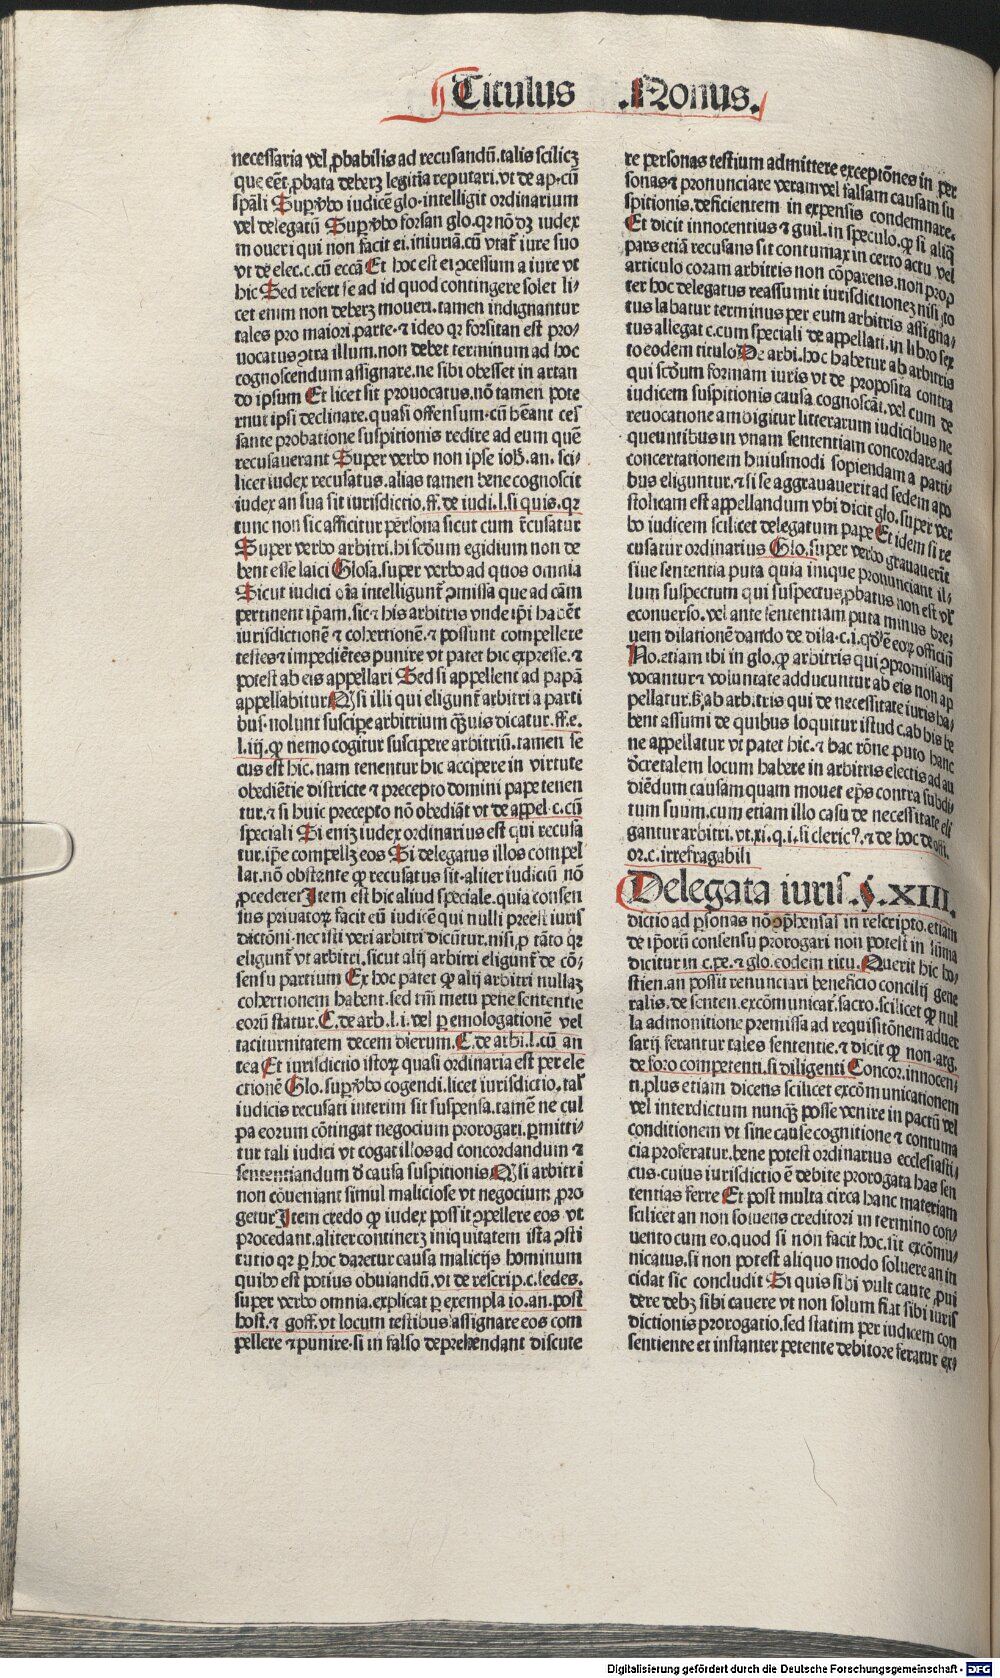 Titulus .Nonus.
necessaria vel ꝓbabilis ad recusandū.talis scilicꝫ
que eēt ꝓbata deberꝫ legitīa reputari.vt de ap.cū
spāli Suꝑ ꝟbo iudicē glo.intelligit ordinarium
vel delegatū Suꝑ ꝟbo forsan glo.qꝛ nō dꝫ iudex
moueri qui non facit ei iniuriā.cū vtat᷑ iure suo
vt de elec.c.cū eccā Et hoc est ei ꝯcessum a iure vt
hic Sed refert se ad id quod contingere solet li⸗
cet enim non deberꝫ moueri.tamen indignantur
tales pro maiori parte.⁊ ideo qꝛ forsitan est pro⸗
uocatus ꝯtra illum.non debet terminum ad hoc
cognoscendum assignare.ne sibi obesset in artan
do ipsum Et licet sit prouocatus.nō tamen pote
rnut ipsi declinare.quasi offensum.cū hēant ces
sante probatione suspitionis redire ad eum quē
recusauerant Super verbo non ipse ioh.an.sci⸗
licet iudex recusatus.alias tamen bene cognoscit
iudex an sua sit iurisdictio.ff.de iudi.l.si quis.qꝛ
tunc non sic afficitur persona sicut cum r̄cusatur
Super verbo arbitri.hi scd̄um egidium non de
bent esse laici Glosa.super verbo ad quos omnia
Sicut iudici oīa intelligunt᷑ ꝯmissa que ad cām
pertinent ip̄am.sic ⁊ his arbitris vnde ip̄i habēt
iurisdictionē ⁊ cohertionē.⁊ possunt compellere
testes ⁊ impediētes punire vt patet hic expresse.⁊
potest ab eis appellari Sed si appellent ad papā
appellabitur Qꝫ si illi qui eligunt᷑ arbitri a parti
bus.nolunt susciꝑe arbitrium qꝫuis dicatur.ff.e.
l.iij.ꝙ nemo cogitur suscipere arbitriū.tamen se
cus est hic.nam tenentur hic accipere in virtute
obediētie districte ⁊ precepto domini pape tenen
tur.⁊ si huic precepto nō obediāt vt de appel.c.cū
speciali Si enīꝫ iudex ordinarius est qui recusa
tur.ip̄e compellꝫ eos Si delegatus illos compel
lat.nō obstante ꝙ recusatus sit.aliter iudiciū nō
ꝓcederet Item est hic aliud speciale.quia consen
sus priuatoꝝ facit eū iudicē qui nulli preest iuris
dictōni.nec isti veri arbitri dicūtur.nisi ꝓ tāto qꝛ
eligunt᷑ vt arbitri.sicut alij arbitri eligunt᷑ de cō⸗
sensu partium Ex hoc patet ꝙ alij arbitri nullaꝫ
cohertionem habent.sed tm̄ metu pene sententie
eorū statur.C.de arb.l.i.vel ꝑ emologationē vel
taciturnitatem decem dierum.C.de arbi.l.cū an
tea Et iurisdictio istoꝝ quasi ordinaria est per ele
ctionē Glo.suꝑ ꝟbo cogendi.licet iurisdictio.tal᷑
iudicis recusati interim sit suspensa.tamē ne cul
pa eorum cōtingat negocium prorogari.ꝑmitti⸗
tur tali iudici vt cogat illos ad concordandum ⁊
sententiandum d̄ causa suspitionis Qꝫ si arbitri
non cōueniant simul maliciose vt negocium ꝓro
getur Item credo ꝙ iudex possit ꝯpellere eos vt
procedant.aliter continerꝫ iniquitatem ista ꝯsti
tutio qꝛ ꝑ hoc daretur causa malicijs hominum
quibꝰ est potius obuiandū.vt de rescrip.c.sedes.
super verbo omnia.explicat ꝑ exempla io.an.post
host.⁊ goff.vt locum testibus assignare eos com
pellere ⁊ punire.si in falso deprehendant discute
re personas testium admittere exceptōnes in per
sonas ⁊ pronunciare veram vel falsam causam su
spitionis.deficientem in expensis condemnare.
Et dicit innocentius ⁊ guil.in speculo.ꝙ si aliq̄
pars etiā recusans sit contumax in certo actu vel
articulo coram arbitris non cōparens.non prop
ter hoc delegatus reassumit iurisdictionez nisi to
tus labatur terminus per eum arbitris assigna⸗
tus allegat c.cum speciali de appellati.in libro sex
to eodem titulo De arbi.hoc habetur ab arbitris
qui scd̄um formam iuris vt de proposita contra
iudicem suspitionis causa cognoscāt.vel cum de
reuocatione ambigitur litterarum iudicibus ne
queuntibus in vnam sententiam concordare.ad
concertationem huiusmodi sopiendam a parti⸗
bus eliguntur.⁊ si se aggrauauerit ad sedem apo
stolicam est appellandum vbi dicit glo.super ver
bo iudicem scilicet delegatum pape Et idem si re
cusatur ordinarius Glo.super verbo grauauerīt
siue sententia puta quia inique pronunciant il⸗
lum suspectum qui suspectus ꝓbatus non est vl᷑
econuerso.vel ante sententiam puta minus bre⸗
uem dilationē dando de dila.c.i.qd̄ ē eoꝝ officiū
No.etiam ibi in glo.ꝙ arbitris qui ꝯpromissarij
vocantur ⁊ voluntate adducuntur ab eis non ap
pellatur.ß ab arbitris qui de necessitate iuris ha⸗
bent assumi de quibus loquitur istud c.ab his be
ne appellatur vt patet hic.⁊ hac rōne puto hanc
d̄cretalem locum habere in arbitris electis ad au
diēdum causam quam mouet ep̄s contra subdi⸗
tum suum.cum etiam illo casu de necessitate eli
gantur arbitri.vt.xi.q.i.si clericꝰ.⁊ de hoc de offi.
or.c.irrefragabili
Delegata iuris.§.XIII.
dictio ad ꝑsonas nō ꝯp̄hensas in rescripto.etiam
de ip̄orū consensu prorogari non potest in sūma
dicitur in c.pe.⁊ glo.eodem titu. Querit hic ho⸗
stien.an possit renunciari beneficio concilij gene
ralis.de senten.excōmunicat᷑.sacro.scilicet ꝙ nul
la admonitione premissa ad requisitōnem aduer
sarij ferantur tales sententie.⁊ dicit ꝙ non.arg.
de foro competenti.si diligenti Concor.innocen⸗
ti.plus etiam dicens scilicet excōmunicationem
vel interdictum nunqꝫ posse venire in pactū vel
conditionem vt sine cause cognitione ⁊ contuma
cia proferatur.bene potest ordinarius ecclesiasti⸗
cus.cuius iurisdictio ē debite prorogata has sen
tentias ferre Et post multa circa hanc materiam
scilicet an non soluens creditori in termino con⸗
uento cum eo.quod si non facit hoc.sit excōmu⸗
nicatus.si non potest aliquo modo soluere an in
cidat sic concludit Si quis sibi vult caute ꝓui
dere debꝫ sibi cauere vt non solum fiat sibi iuris
dictionis prorogatio.sed statim per iudicem con
sentiente et instanter petente debitore feratur ex⸗
Digitalisierung gefördert durch die Deutsche Forschungsgemeinschaft - DFG